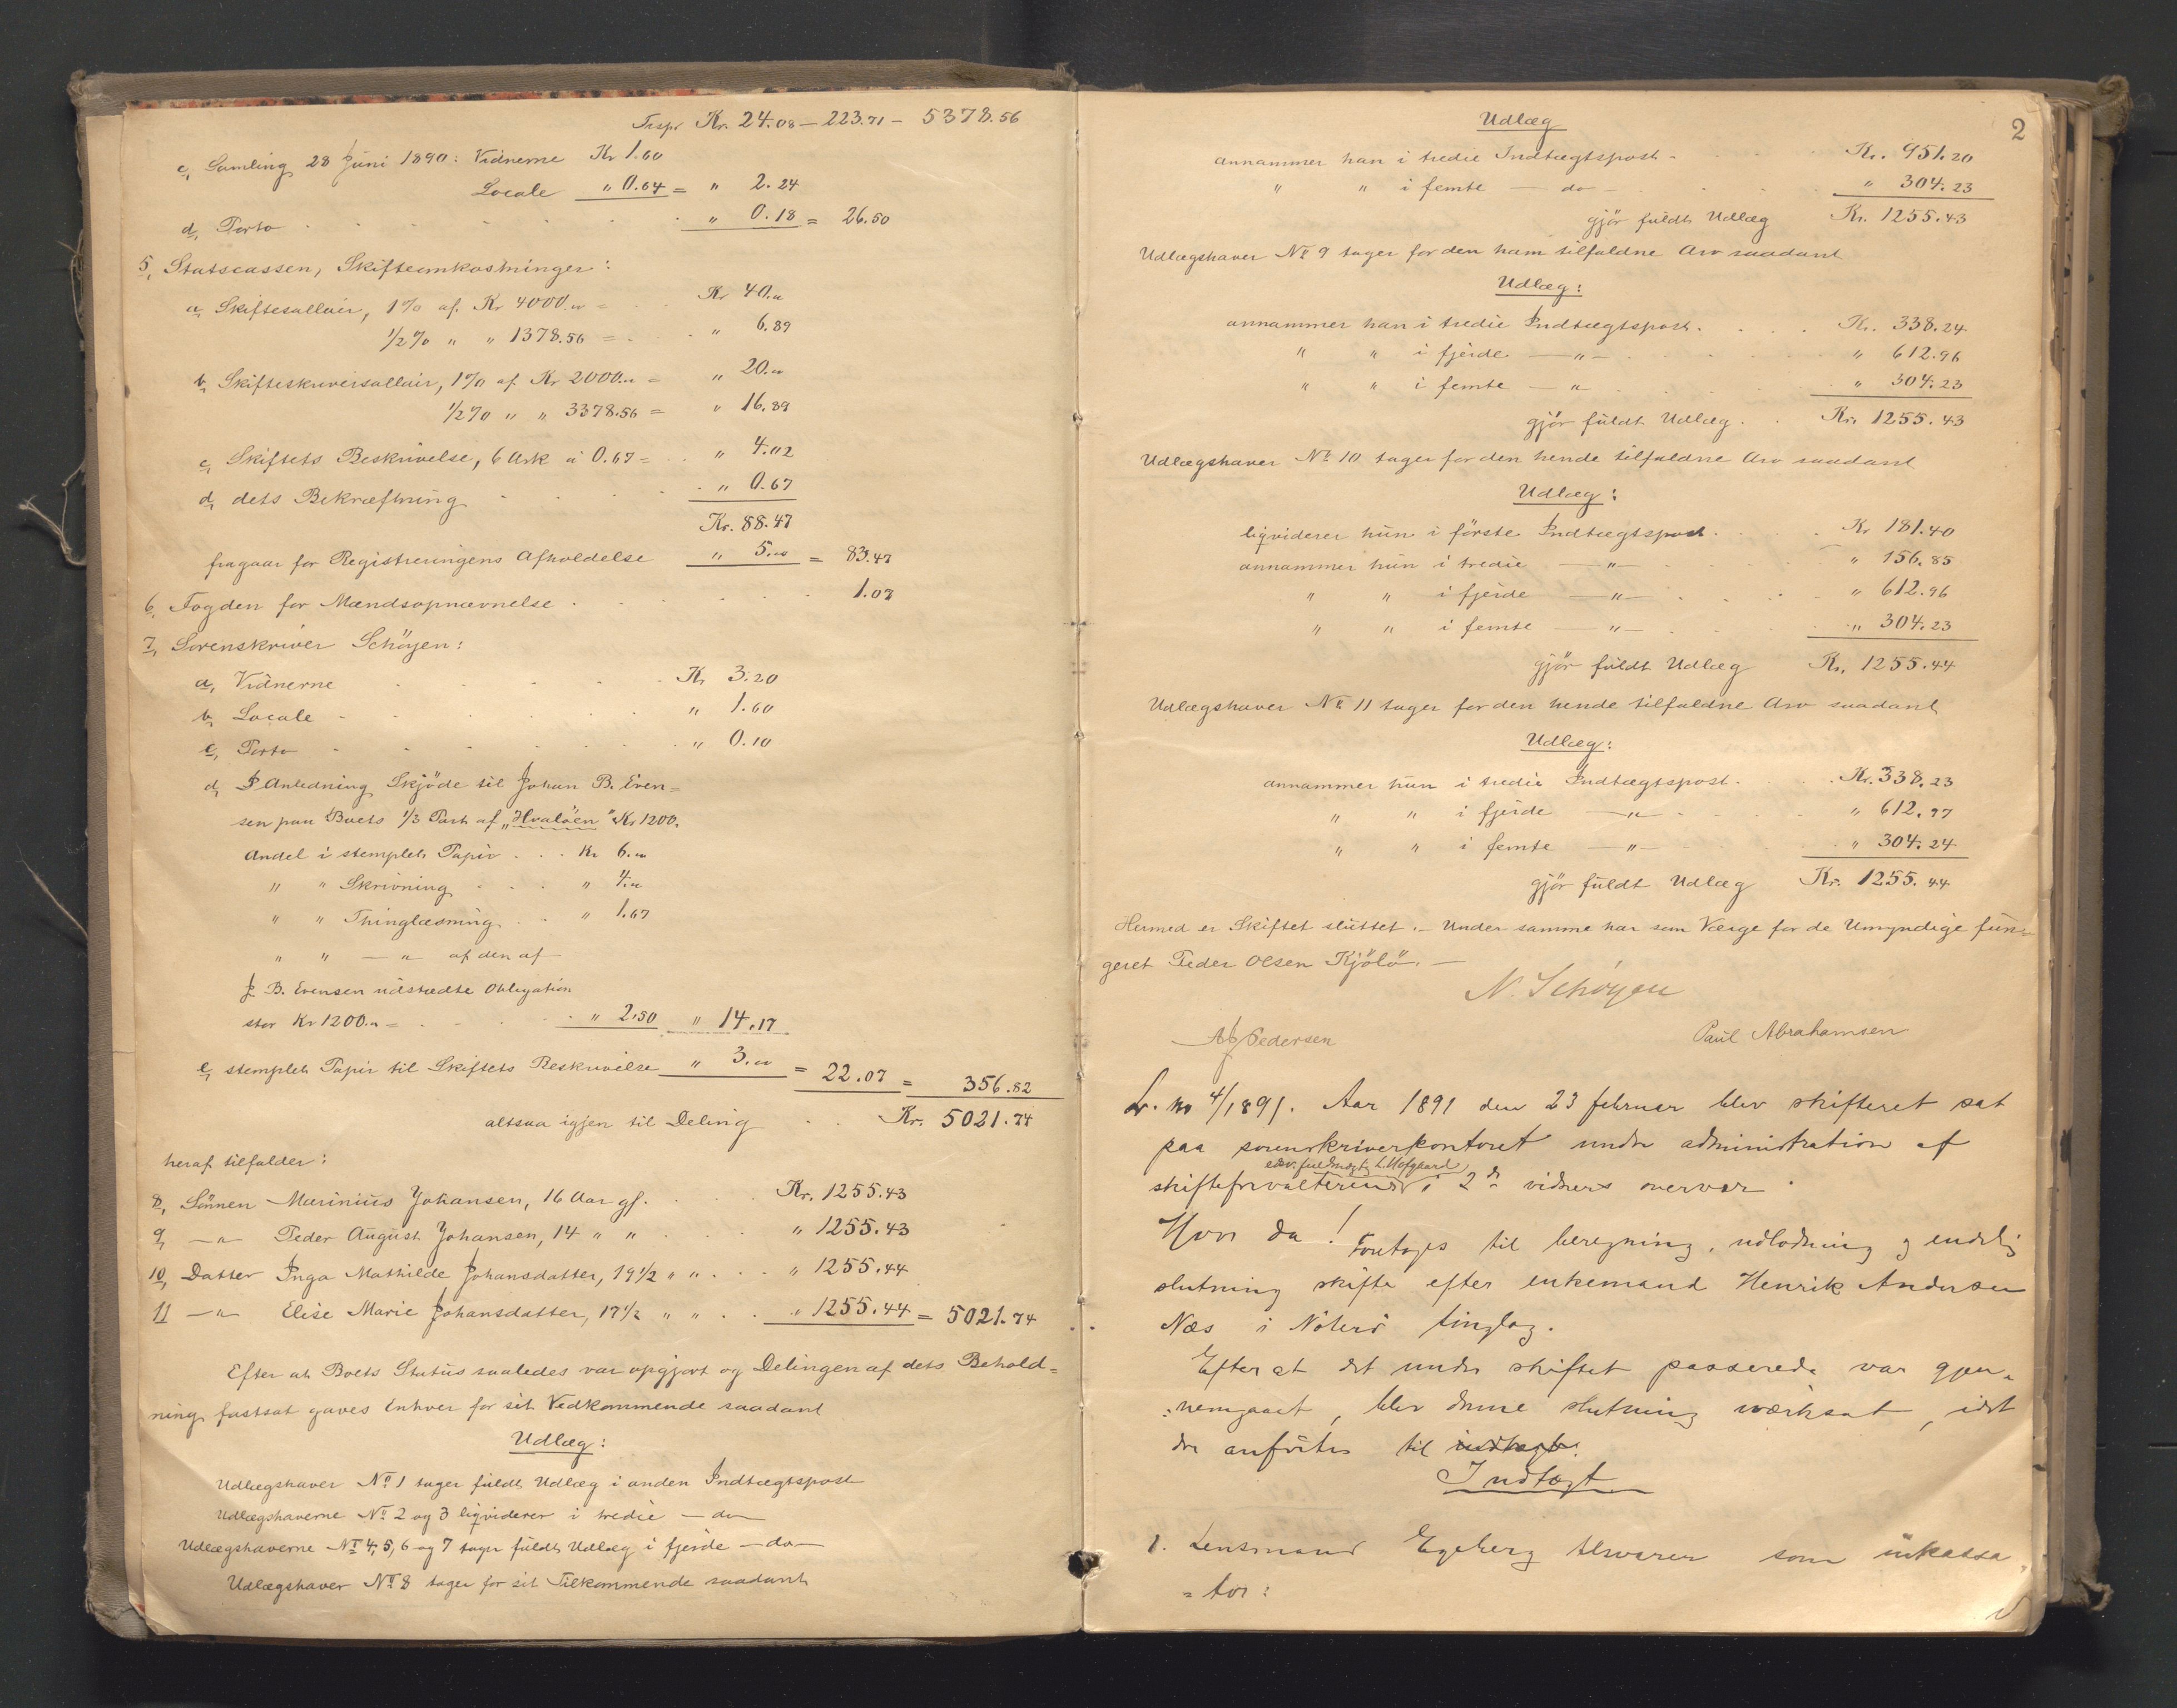 Trspt Kr. 24.08 — 223.71 — 5378.56
c, Samling 28 Juni 1890: Vidnerne Kr 1.60
Locale " 0.64 = " 2.24
d, Porto " 0.18 = 26.50
5, Statscassen, Skifteomkostninger:
a, Skiftesallair, 1% af Kr 4000.00 = Kr 40.00
1/2% " " 1378.56 = " 6.89
b, Skifteskriversallair, 1% af Kr 2000.00 = " 20.00
1/2% " " 3378.56 = " 16.89
c, Skiftets Beskrivelse, 6 Ark à 0.67 = " 4.02
d, dets Bekræftning " 0.67
Kr. 88.47
fragaar for Registreringens Afholdelse " 5.00 = 83.47
6, Fogden for Mændsopnævnelse 1.07
7, Sorenskriver Schöyen:
a, Vidnerne Kr 3.20
b, Locale " 1.60
c, Porto " 0.10
d, I Anledning Skjöde til Johan B. Even=
sen paa Boets 1/3 Part af "Hvalöen" Kr 1200.
Andel i stemplet Papir Kr 6.00
" " Skrivning " 4.00
" " Thinglæsning " 1.67
" " — " — af den af
J. B. Evensen udstædte Obligation
stor Kr 1200.00 = " 2.50 " 14.17
e, stemplet Papir til Skiftets Beskrivelse " 3.00 = 22.07 = 356.82
altsaa igjen til Deling Kr. 5021.74
heraf tilfalder:
8, Sönnen Marinius Johansen, 16 Aar gl. Kr. 1255.43
9, — " — Peder August Johansen, 14 " " " 1255.43
10, Datter Inga Mathilde Johansdatter, 19 1/2 " " " 1255.44
11 — " — Elise Marie Johansdatter, 17 1/2 " " " 1255.44 = 5021.74
Efter at Boets Status saaledes var opgjort og Delingen af dets Behold=
ning fastsat gaves Enhver for sit Vedkommende saadant
Udlæg:
Udlægshaver No 1 tager fuldt Udlæg i anden Indtægtspost
Udlægshaverne No 2 og 3 liqviderer i tredie — do —
Udlægshaverne No 4, 5, 6 og 7 tager fuldt Udlæg i fjerde — do —
Udlægshaver No 8 tager for sit Tilkommende saadant
2
Udlæg
annammer han i tredie Indtægtspost Kr. 951.20
" " i femte — do — " 304.23
gjör fuldt Udlæg Kr. 1255.43
Udlægshaver No 9 tager for den ham tilfaldne Arv saadant
Udlæg:
annammer han i tredie Indtægtspost Kr. 338.24
" " i fjerde — " — " 612.96
" " i femte — " — " 304.23
gjör fuldt Udlæg Kr. 1255.43
Udlægshaver No 10 tager for den hende tilfaldne Arv saadant
Udlæg:
liqviderer hun i förste Indtægtspost Kr 181.40
annammer hun i tredie — " — " 156.85
" " i fjerde — " — " 612.96
" " i femte — " — " 304.23
gjör fuldt Udlæg Kr. 1255.44
Udlægshaver No 11 tager for den hende tilfaldne Arv saadant
Udlæg:
annammer hun i tredie Indtægtspost Kr. 338.23
" " i fjerde — " — " 612.97
" " i femte — " — " 304.24
gjör fuldt Udlæg Kr. 1255.44
Hermed er Skiftet sluttet. — Under samme har som Værge for de Umyndige fun=
geret Peder Olsen Kjölö. —
N. Schöyen
Pedersen Paul Abrahamsen
L. no 4/1891. Aar 1891 den 23 februar blev skifteret sat
paa sorenskriverkontoret under administration af
edsv. fuldmægtig L. Hofgaard
skifteforvalteren i 2de vidners overvær.
Hvor da! Foretoges til beregning, udlodning og endelig
slutning skifte efter enkemand Henrik Andersen
Næs i Nöterö tinglag.
Efter at det under skiftet passerede var gjen=
nemgaaet, blev denne slutning iværksat, idet
der anförtes til indtægt:
Indtægt
1. Lensmand Egeberg tilsvarer som inkassa=
=tor: